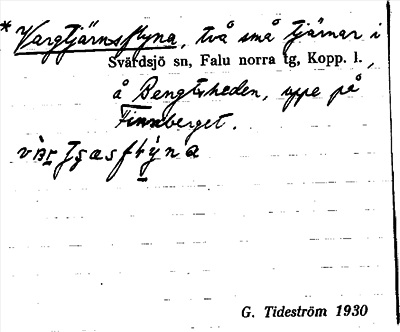 * Vargtjärnsflyna, två små tjärnar i
Svärdsjö sn, Falu norra tg, Kopp. l.,
å Bengtsheden, uppe på
Finnberget.
G. Tideström 1930